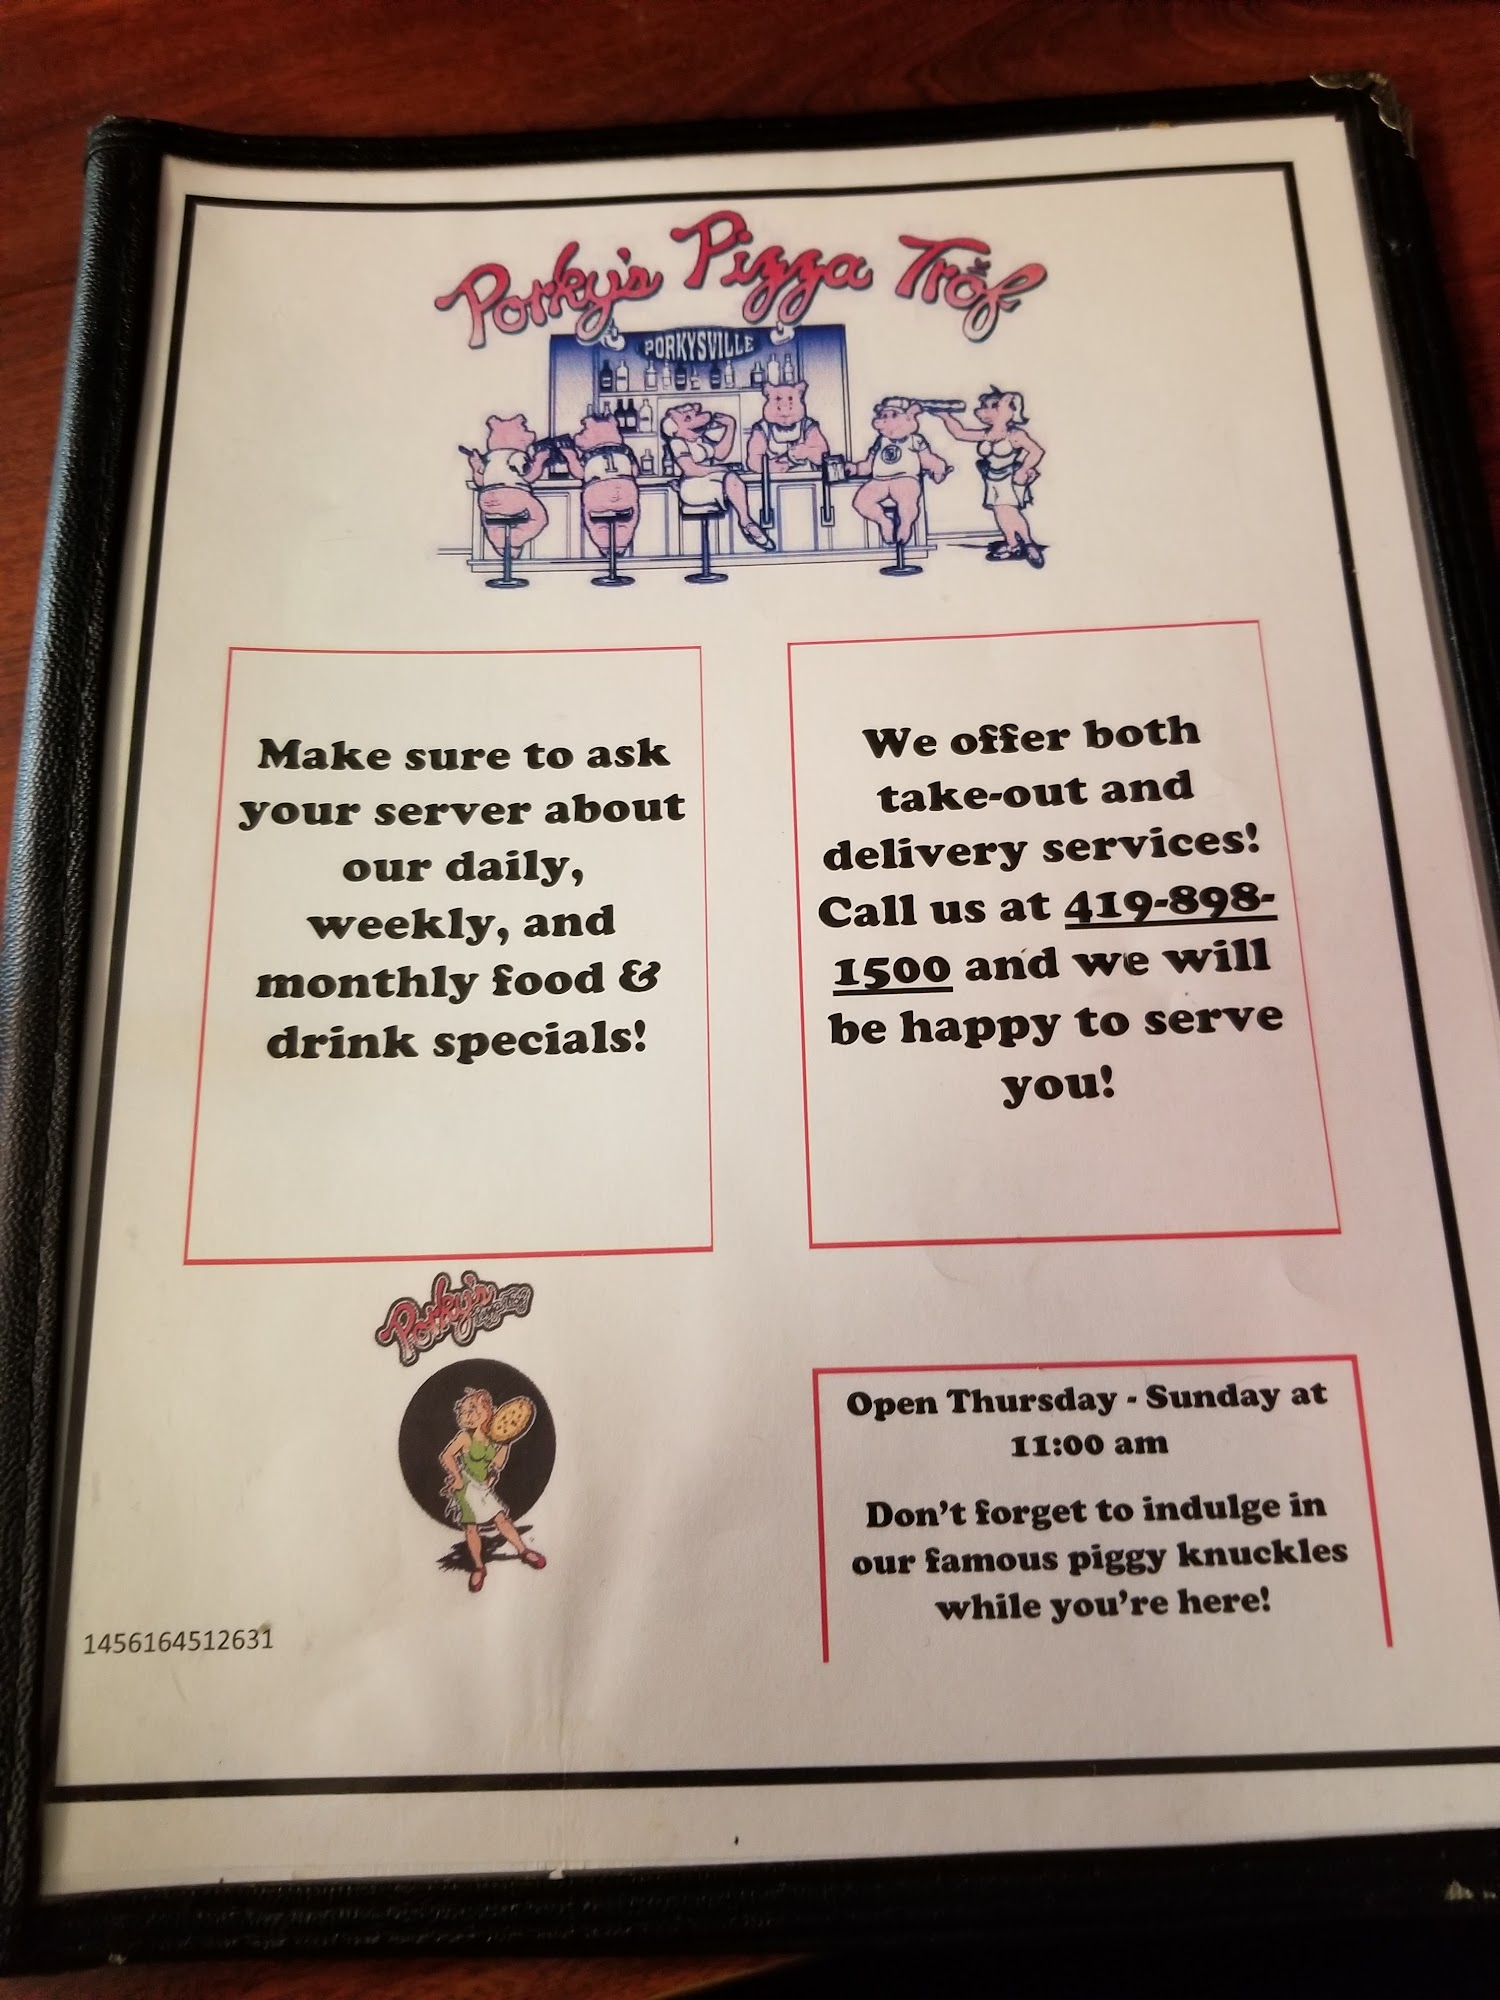 Porky's Pizza Trof
PORKYSVILLE
1
Make sure to ask
your server about
our daily,
weekly, and
monthly food &
drink specials!
We offer both
take-out and
delivery services!
Call us at 419-898-
1500 and we will
be happy to serve
you!
Porky's
Open Thursday - Sunday at
11:00 am
Don't forget to indulge in
our famous piggy knuckles
while you're here!
1456164512631